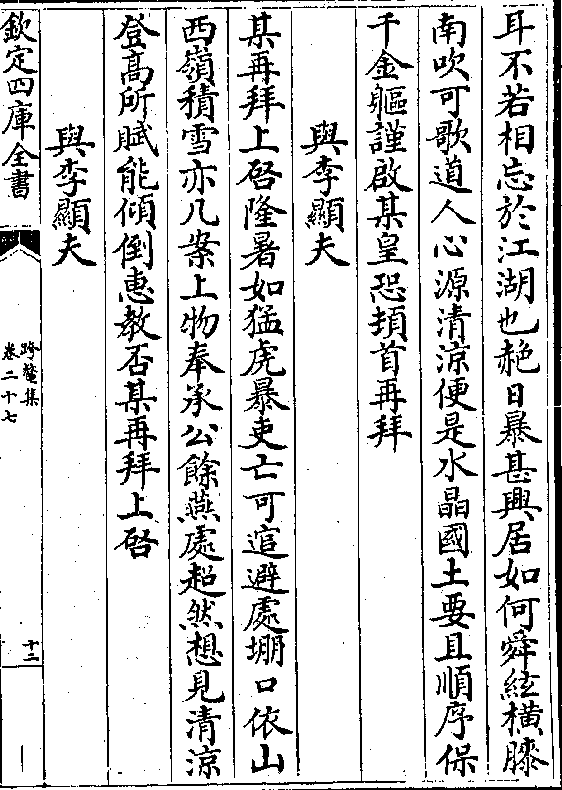 耳不若相忘於江湖也赩日暴甚興居如何舜絃橫膝
南吹可歌道人心源清涼便是水晶國土要且順序保
千金軀謹啟某皇恐頓首再拜
與李顯夫
某再拜上啓隆暑如猛虎暴吏亡可逭避處堋口依山
西嶺積雪亦几案上物奉承公餘燕處超然想見清涼
登高所賦能傾倒惠教否某再拜上啓
與李顯夫
欽定四庫全書
跨鼇集
卷二十七
十二